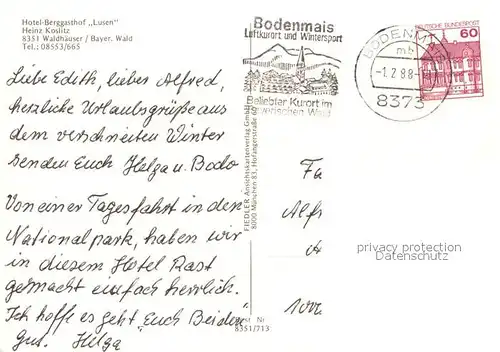 Hotel-Berggasthof „Lusen"
Heinz Koslitz
8351 Waldhäuser / Bayer. Wald
Tel.: 08553/665
Liebe Edith, lieber Alfred,
herzliche Urlaubsgrüße aus
dem verschneiten Winter
senden Euch Helga u. Bodo
Von einer Tagesfahrt in den
Nationalpark, haben wir
in diesem Hotel Rast
gemacht einfach herrlich.
Ich hoffe es geht Euch Beiden
gut. Helga
FIEDLER Ansichtskartenverlag GmbH
8000 München 83, Hofangerstraße
Nr
8351/713
Bodenmais
Luftkurort und Wintersport
Beliebter Kurort im
Bayerischen Wald
BODENM
mb
-1.2.88-
8373
DEUTSCHE BUNDESPOST
60
Fa
Alf
1000
privacy protection
Datenschutz